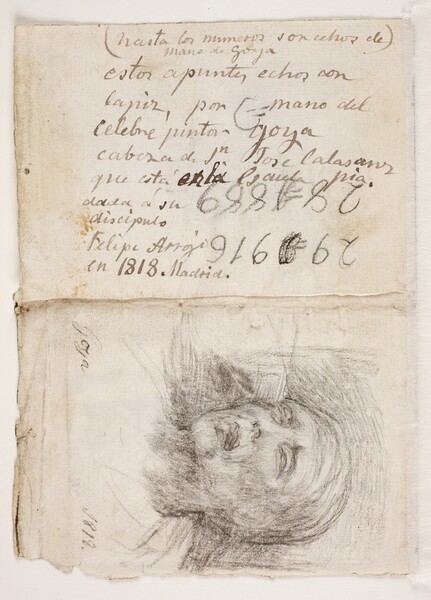 (hasta los numeros son echos de)
mano de Goya
estos apuntes echos con
lapiz, por mano del
Celebre pintor Goya
cabeza de Sn Jose Calasanz
que está en la Escuela pia.
dada a su
discipulo
Felipe Arrojo
en 1818. Madrid.
Goya